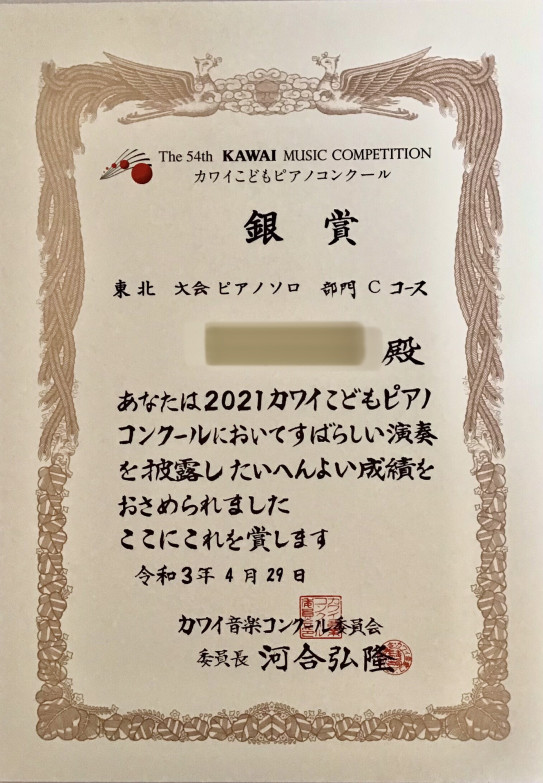 The 54th KAWAI MUSIC COMPETITION
カワイこどもピアノコンクール
銀賞
東北 大会 ピアノソロ 部門 C コース
殿
あなたは2021カワイこどもピアノ
コンクールにおいてすばらしい演奏
を披露し たいへんよい成績を
おさめられました
ここにこれを賞します
令和3年4月29日
カワイ音楽コンクール委員会
委員長 河合弘隆